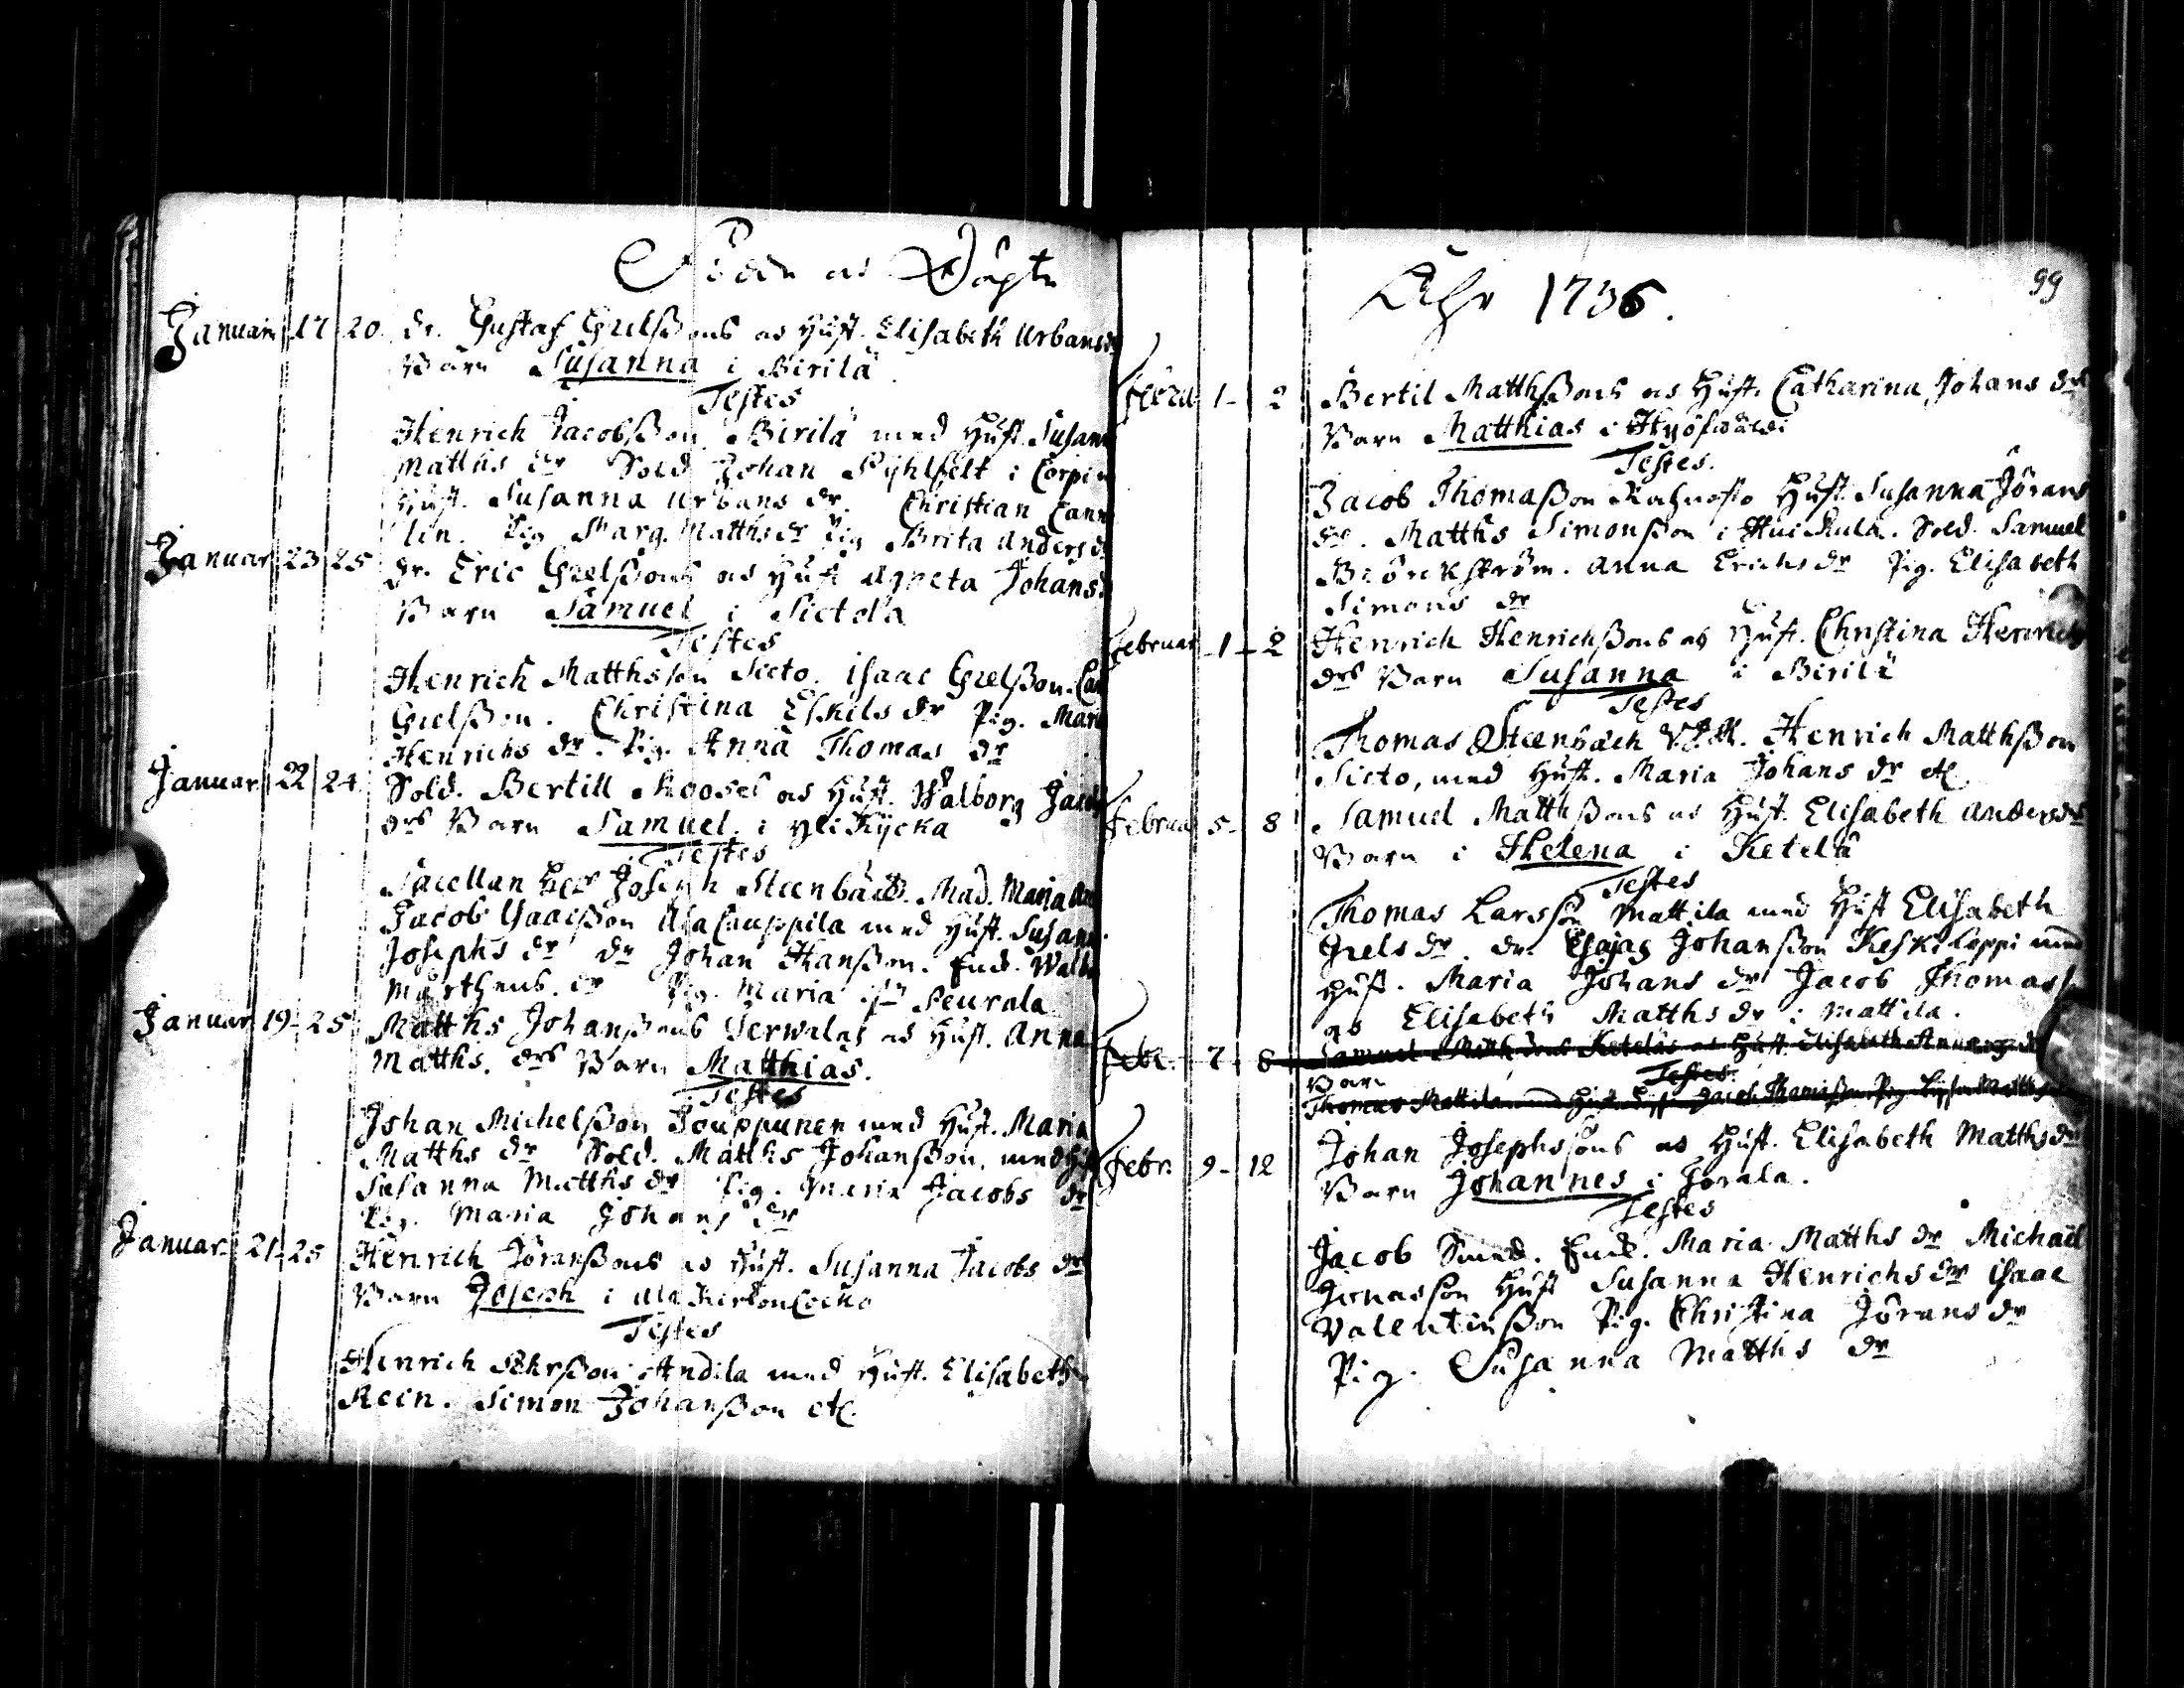 Födde as Döpte
Januarii 17 20. Dr. Gustaf Grelßons as Hust. Elisabeth Urbans dr
Barn Susanna i Birilä
Testes
Henrich Jacobßon Birilä med Hust. Susann
Matths dr Sold. Johan Pihlfelt i Corpi
Hust. Susanna Urbans dr. Christian Cann
lin. Pig Marg. Matths dr Pig Brita Anders d
Januar 23 25 Dr. Eric Grelßons as Hust Agneta Johans d
Barn Samuel i Sictola
Testes
Henrich Matthsson Sicto. Isaac Grelßon. Ca
Grelßon. Christina Eskils dr Pig. Mari
Henrichs dr. Pig. Anna Thomas dr
Januar 22 24. Sold. Bertill Mooses as Hust. Walborg Jacobs
drs Barn Samuel i yli Kycka
Testes
Sacellan Her Joseph Steenbäck. Mad. Maria
Jacob Isaacßon Ala Cauppila med Hust. Susann
Josephs dr Dr Johan Hanßon. Enck. Walb
Mårthens dr Pig. Maria Peurala
Januar 19-25 Matths Johanßons Terwalas as Hust. Anna
Matths. drs Barn Matthias.
Testes
Johan Michelßon Jouppunen med Hust. Maria
Matths dr Sold. Matths Johanßon, med Hust
Susanna Matths dr Pig. Maria Jacobs dr
Pig. Maria Johans dr
Januar. 21-25 Henrich Jöranßons as Hust. Susanna Jacobs dr
Barn Joseph i Ala
Testes
Henrich Andila med Hust. Elisabeth
Rein. Simon Johanßon etc.
99
Åhr 1736.
1-2 Bertil Matthßons as Hust. Catharina Johans dr
Barn Matthias i
Testes.
Jacob Thomaßon Hust. Susanna Jörans
dr. Matths Simonßon i Huickula. Sold. Samuel
Biörckström. Anna Erichs dr Pig. Elisabeth
Simons dr
Februar 1-2 Henrich Henrichßons as Hust. Christina Henrichs
drs Barn Susanna i Birilä
Testes
Thomas Steenbäck Henrich Matthßon
Sicto, med Hust. Maria Johans dr etc
Februa 5-8 Samuel Matthßons as Hust. Elisabeth Anders dr
Barn i Helena i Ketelä
Testes
Thomas Larsson Mattila med Hust Elisabeth
Grels dr. Dr. Esajas Johanßon Keski Loppi med
Hust. Maria Johans dr Jacob Thomass
as Elisabeth Matths dr i Mattila.
Febr. 7-8 Samuel Matthsons Keteläs as Hust. Elisabeth
Barn Testes
Thomas Mattila med Hust. Jacob Thomaßon Pig
Febr. 9-12 Johan Josephssons as Hust. Elisabeth Matths dr
Barn Johannes i Gorala.
Testes
Jacob Smed. Enck. Maria Matths dr Michaël
Jonasson Hust Susanna Henrichs dr Isaac
Valentinßon Pig. Christina Jörans dr
Pig. Susanna Matths dr